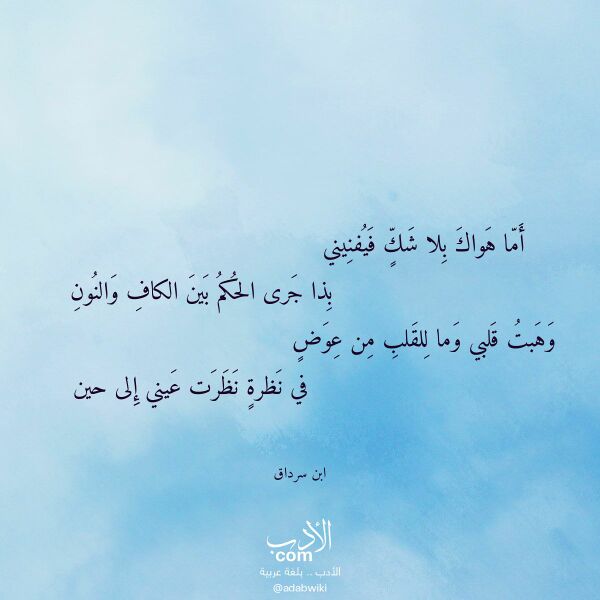 أَمّا هَواكَ بِلا شَكٍّ فَيُفنِيني
بِذا جَرى الحُكمُ بَينَ الكافِ وَالنُونِ
وَهَبتُ قَلبي وَما لِلقَلبِ مِن عِوَضٍ
في نَظرةٍ نَظَرَت عَيني إِلى حين
ابن سرداق
الأدب
com
الأدب .. بلغة عربية
@adabwiki